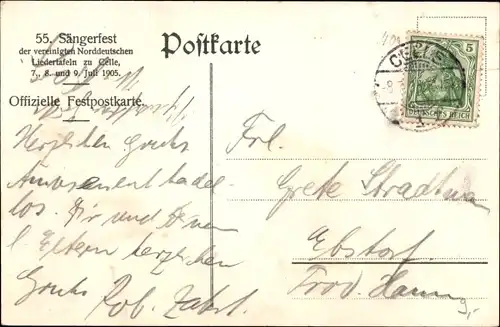 55. Sängerfest
der vereinigten Norddeutschen
Liedertafeln zu Celle,
7., 8. und 9. Juli 1905.
Offizielle Festpostkarte.
Postkarte
CELLE
5
DEUTSCHES REICH
Herzlichen Gruß
Amusement tadel
los. Dir und Deinen
l. Eltern herzlichen
Gruß Rob.
Frl.
Grete
Ebstorf
Prov. Hann